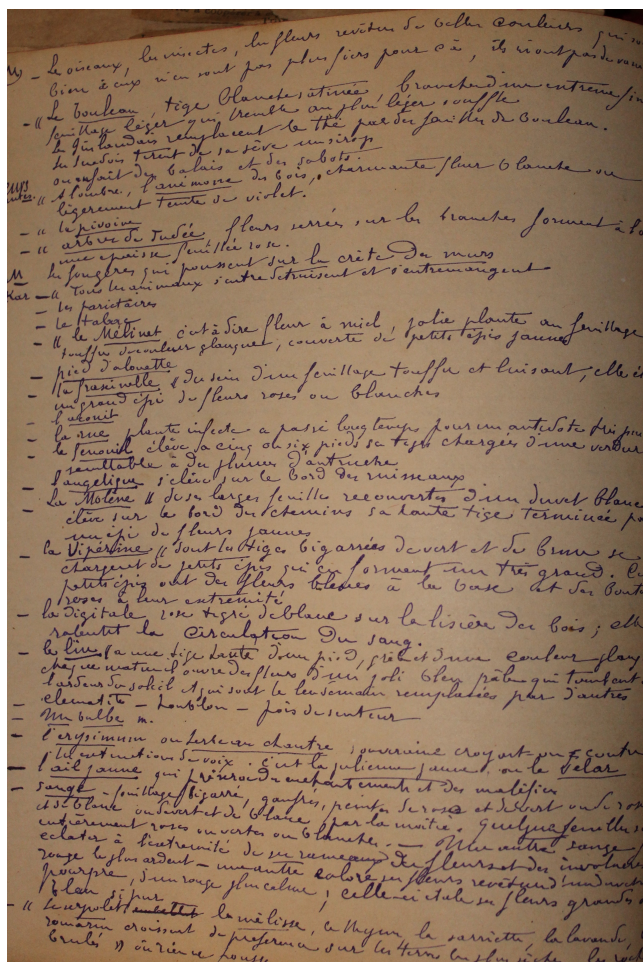 – Les oiseaux, les insectes, les fleurs revêtus de belles couleurs qui
bien à eux n'en sont pas plus fiers pour çà, ils n'ont pas de
– "Le bouleau, tige blanche satinée branches d'une extrême
feuillage léger qui tremble au plus léger souffle
Les Finlandais remplacent le thé par des feuilles de bouleau.
Les Suédois tirent de sa sève un sirop
on en fait des balais et des sabots.
– "à l'ombre, l'anémone des bois, charmante fleur blanche ou
légèrement teinte de violet.
– "la pivoine
– "arbre de Judée, fleurs serrées sur les branches forment à
une épaisse feuillée rose.
les fougères qui poussent sur la crête des murs
Kar – "Tous les animaux s'entredétruisent et s'entremangent
– les pariétaires
– le tabac
– "le Mélinet c'est à dire fleur à miel, jolie plante au feuillage
touffu de couleur glauque, couverte de petits épis jaunes
– pied d'alouette
– la fraxinelle "du sein d'un feuillage touffu et luisant, elle
un grand épi de fleurs roses ou blanches
– l'aconit
– la rue plante infecte a passé longtemps pour un antidote
– le fenouil élève à cinq ou six pieds sa tige chargée d'une verdure
semblable à des plumes d'autruche
– l'angélique s'élève sur le bord des ruisseaux
– La Molène "de ses larges feuilles recouvertes d'un duvet blanc
élève sur le bord des chemins sa haute tige terminée
un épi de fleurs jaunes
– la Vipérine "dont les tiges bigarrées de vert et de brun se
chargent de petits épis qui en forment un très grand.
petits épis ont des fleurs bleues à la base et des
roses à leur extrémité
– la digitale rose tigré de blanc sur la lisière des bois ;
ralentit la circulation du sang.
– le lin "a une tige haute d'un pied, grêle et d'une couleur
chaque matin il ouvre des fleurs d'un joli bleu pâle qui tombent
l'ardeur du soleil et qui sont le lendemain remplacées par d'autres
– clématite – houblon – pois de senteur
– Un bulbe m.
– l'erysimum ou herbe au chantre souveraine croyait-on contre
les extinctions de voix. c'est la julienne jaune ou le velar
– l'ail jaune qui préserve des enchantements et des maléfices
– sauge – feuillage bigarré, gaufrés, peints de rose et de vert ou de
et de blanc ou de vert et de blanc par la moitié. Quelques feuilles
entièrement roses ou vertes ou blanches. – Une autre sauge
éclater à l'extrémité de ses rameaux des fleurs et des
rouge le plus ardent – une autre colore ses fleurs
pourpre, d'un rouge plus calme ; celle-ci étale ses fleurs grandes
bleu si pur
– "Le serpolet la mélisse, le thym la sarriette, la lavande,
romarin croissent de préférence sur les terres les plus sèches, les
brûlés où rien ne pousse